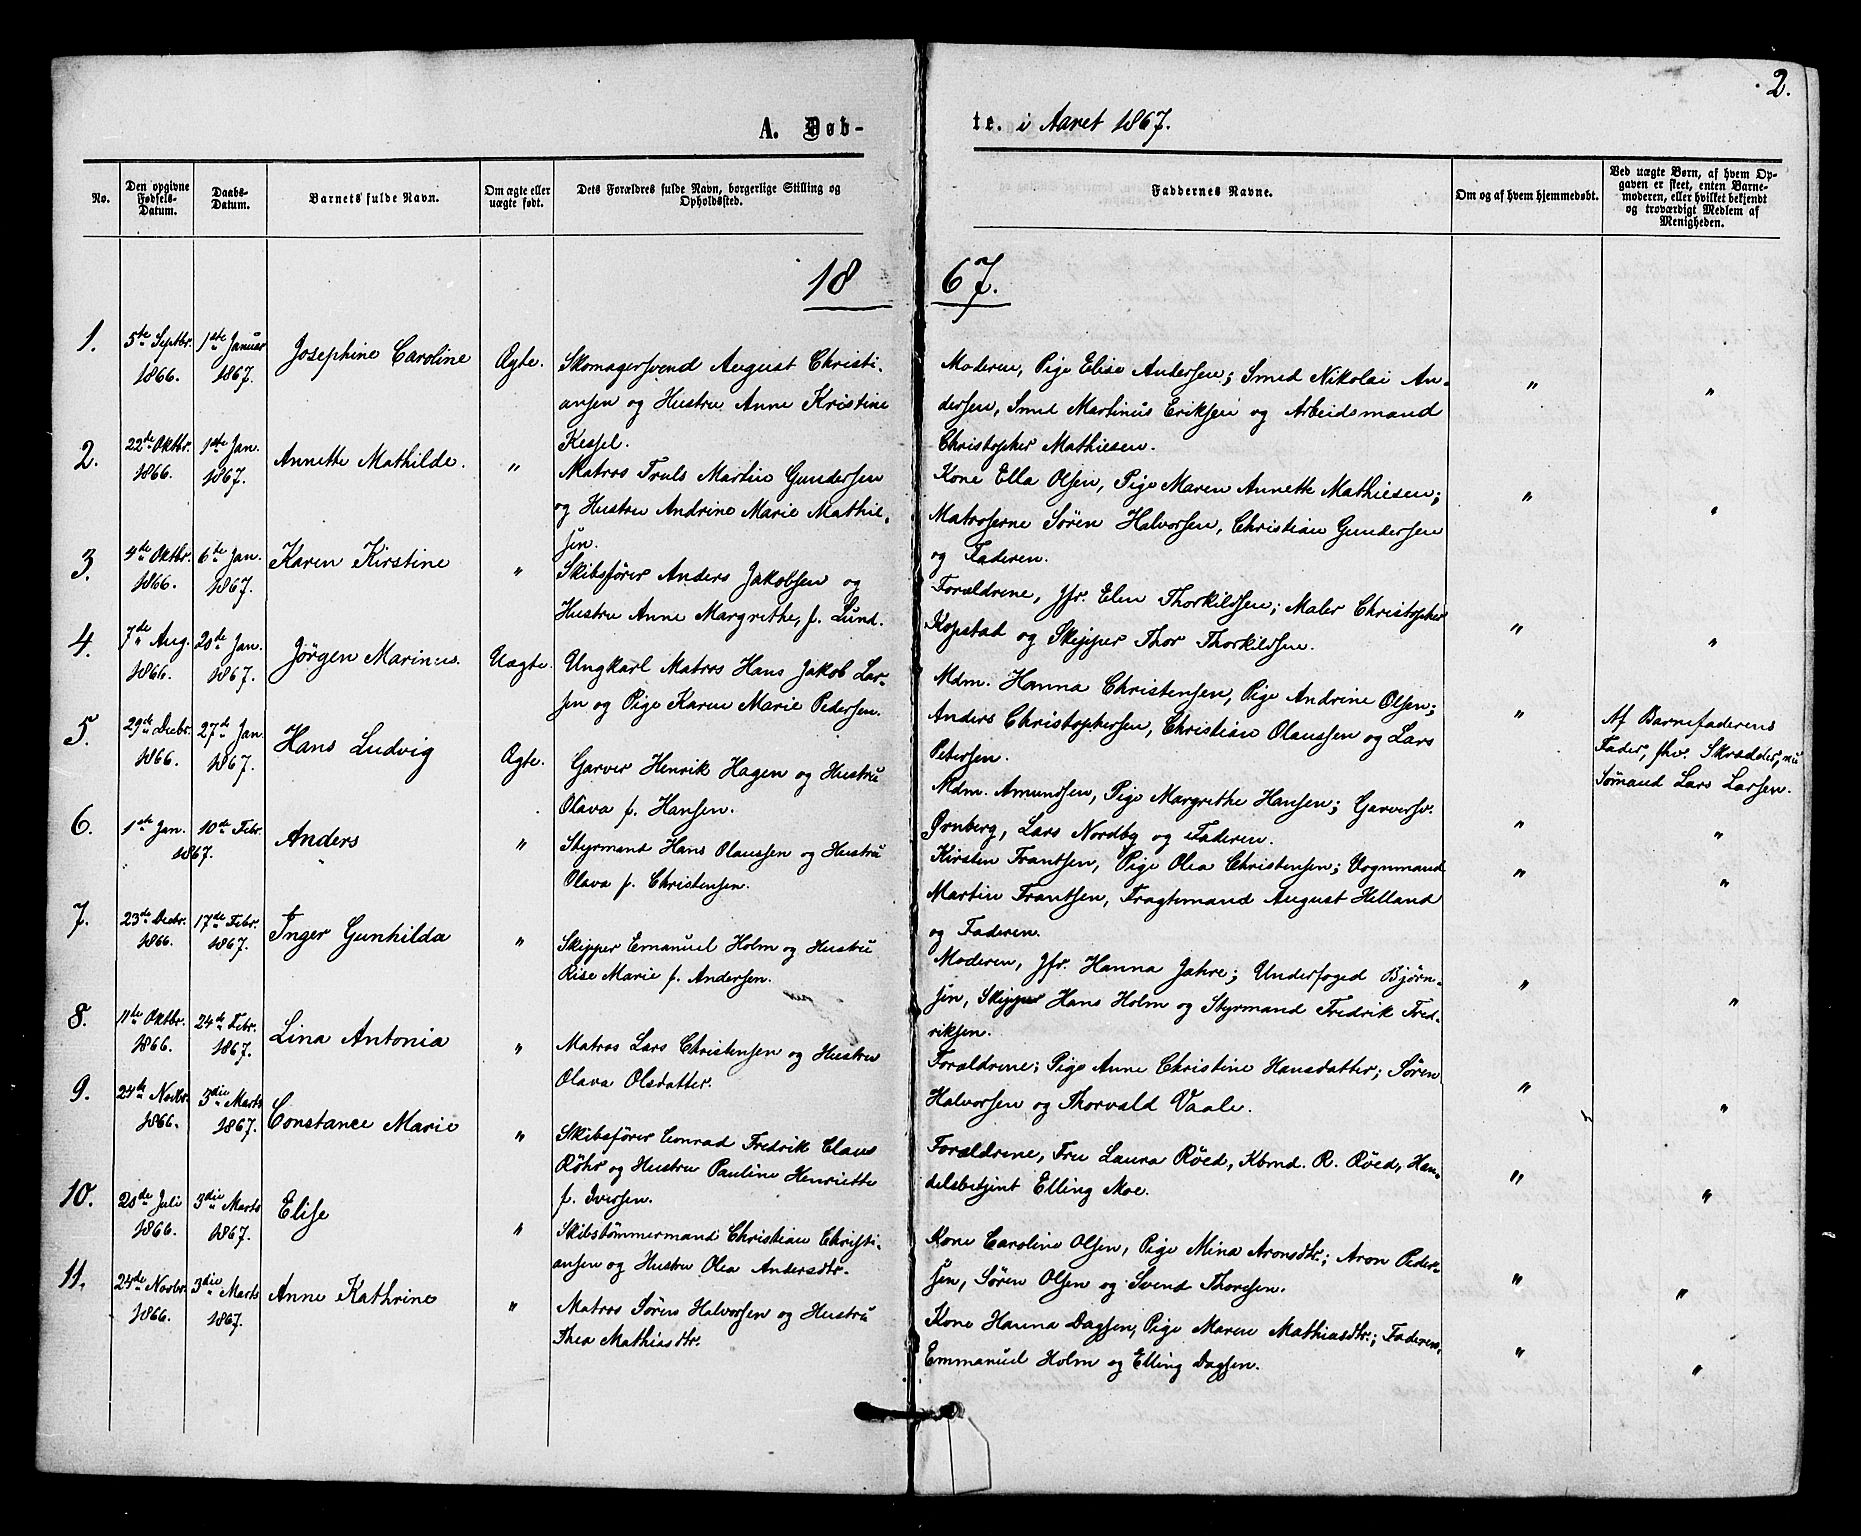 2.
A. Døb-
te. i Aaret 1867.
No.
Den opgivne
Fødsels-
Datum.
Daabs-
Datum.
Barnets fulde Navn.
Om ægte eller
uægte født.
Dets Forældres fulde Navn, borgerlige Stilling og
Opholdssted.
Faddernes Navne.
Om og af hvem hjemmedøbt.
Ved uægte Børn, af hvem Op-
gaven er skeet, enten Barne-
moderen, eller hvilket bekjendt
og troværdigt Medlem af
Menigheden.
18
67.
1.
5te Septbr.
1866.
1ste Januar
1867.
Josephine Caroline
Ægte.
Skomagersvend August Christi-
ansen og Hustru Anne Kristine
Kessel.
Moderen, Pige Elise Andersen; Smed Nikolai An-
dersen, Smed Martinus Eriksen og Arbeidsmand
Christopher Mathiesen.
"
"
2.
22de Oktbr.
1866.
1ste Jan.
1867.
Annette Mathilde.
"
Matros Truls Martin Gundersen
og Hustru Andrine Marie Mathie-
sen.
Kone Ella Olsen, Pige Maren Annette Mathiesen;
Matroserne Sören Halvorsen, Christian Gundersen
og Faderen.
"
"
3.
4de Oktbr.
1866.
6te Jan.
1867.
Karen Kirstine
"
Skibsförer Anders Jakobsen og
Hustru Anne Margrethe, f. Lund.
Forældrene, Jfr. Elen Thorkildsen; Maler Christopher
Kopstad og Skipper Thor Thorkildsen.
"
"
4.
7de Aug.
1866.
20de Jan.
1867.
Jörgen Marinus.
Uægte.
Ungkarl Matros Hans Jakob Lar-
sen og Pige Karen Marie Pedersen.
Mdm. Hanna Christensen, Pige Andrine Olsen;
Anders Christophersen, Christian Olaussen og Lars
Petersen.
"
Af Barnefaderens
Fader, fhv. Skrædder, nu
Sømand Lars Larsen.
5.
29de Decbr.
1866.
27de Jan.
1867.
Hans Ludvig
Ægte.
Garver Henrik Hagen og Hustru
Olava f. Hansen.
Mdm. Amundsen, Pige Margrethe Hansen; Garversv.
Ørnberg, Lars Nordby og Faderen.
"
"
6.
1ste Jan.
10de Febr.
1867.
Anders
"
Styrmand Hans Olaussen og Hustru
Olava f. Christensen.
Kirsten Frantsen, Pige Olea Christensen; Vognmand
Martin Frantsen, Fragtemand August Helland
og Faderen.
"
"
7.
23de Decbr.
1866.
17de Febr.
1867.
Inger Gunhilda
"
Skipper Emanuel Holm og Hustru
Rise Marie f. Andersen.
Moderen, Jfr. Hanna Jahre; Underfoged Bjørn-
sen, Skipper Hans Holm og Styrmand Fredrik Fred-
riksen.
"
"
8.
11te Oktbr.
1866.
24de Febr.
1867.
Lina Antonia
"
Matros Lars Christensen og Hustru
Olava Olsdatter.
Forældrene; Pige Anne Christine Hansdatter; Sören
Halvorsen og Thorvald Vaale.
"
"
9.
24de Novbr.
1866.
3die Marts
1867.
Constance Marie
"
Skibsförer Conrad Fredrik Claus
Röhr og Hustru Pauline Henriette
f. Iversen.
Forældrene, Fru Laura Röed, Kbmd. R. Röed, Han-
delsbetjent Elling Moe.
"
"
10.
20de Juli
1866.
3die Marts
1867.
Elise
"
Skibstömmermand Christian Christi-
ansen og Hustru Olea Andersdtr.
Kone Caroline Olsen, Pige Mina Aronsdtr.; Aron Peder-
sen, Sören Olsen og Svend Thoresen.
"
"
11.
24de Novbr.
1866.
3die Marts
1867.
Anne Kathrine
"
Matros Sören Halvorsen og Hustru
Thea Mathiasdtr.
Kone Hanna Dagsen, Pige Maren Mathiasdtr.; Faderen,
Emmanuel Holm og Elling Dagsen.
"
"